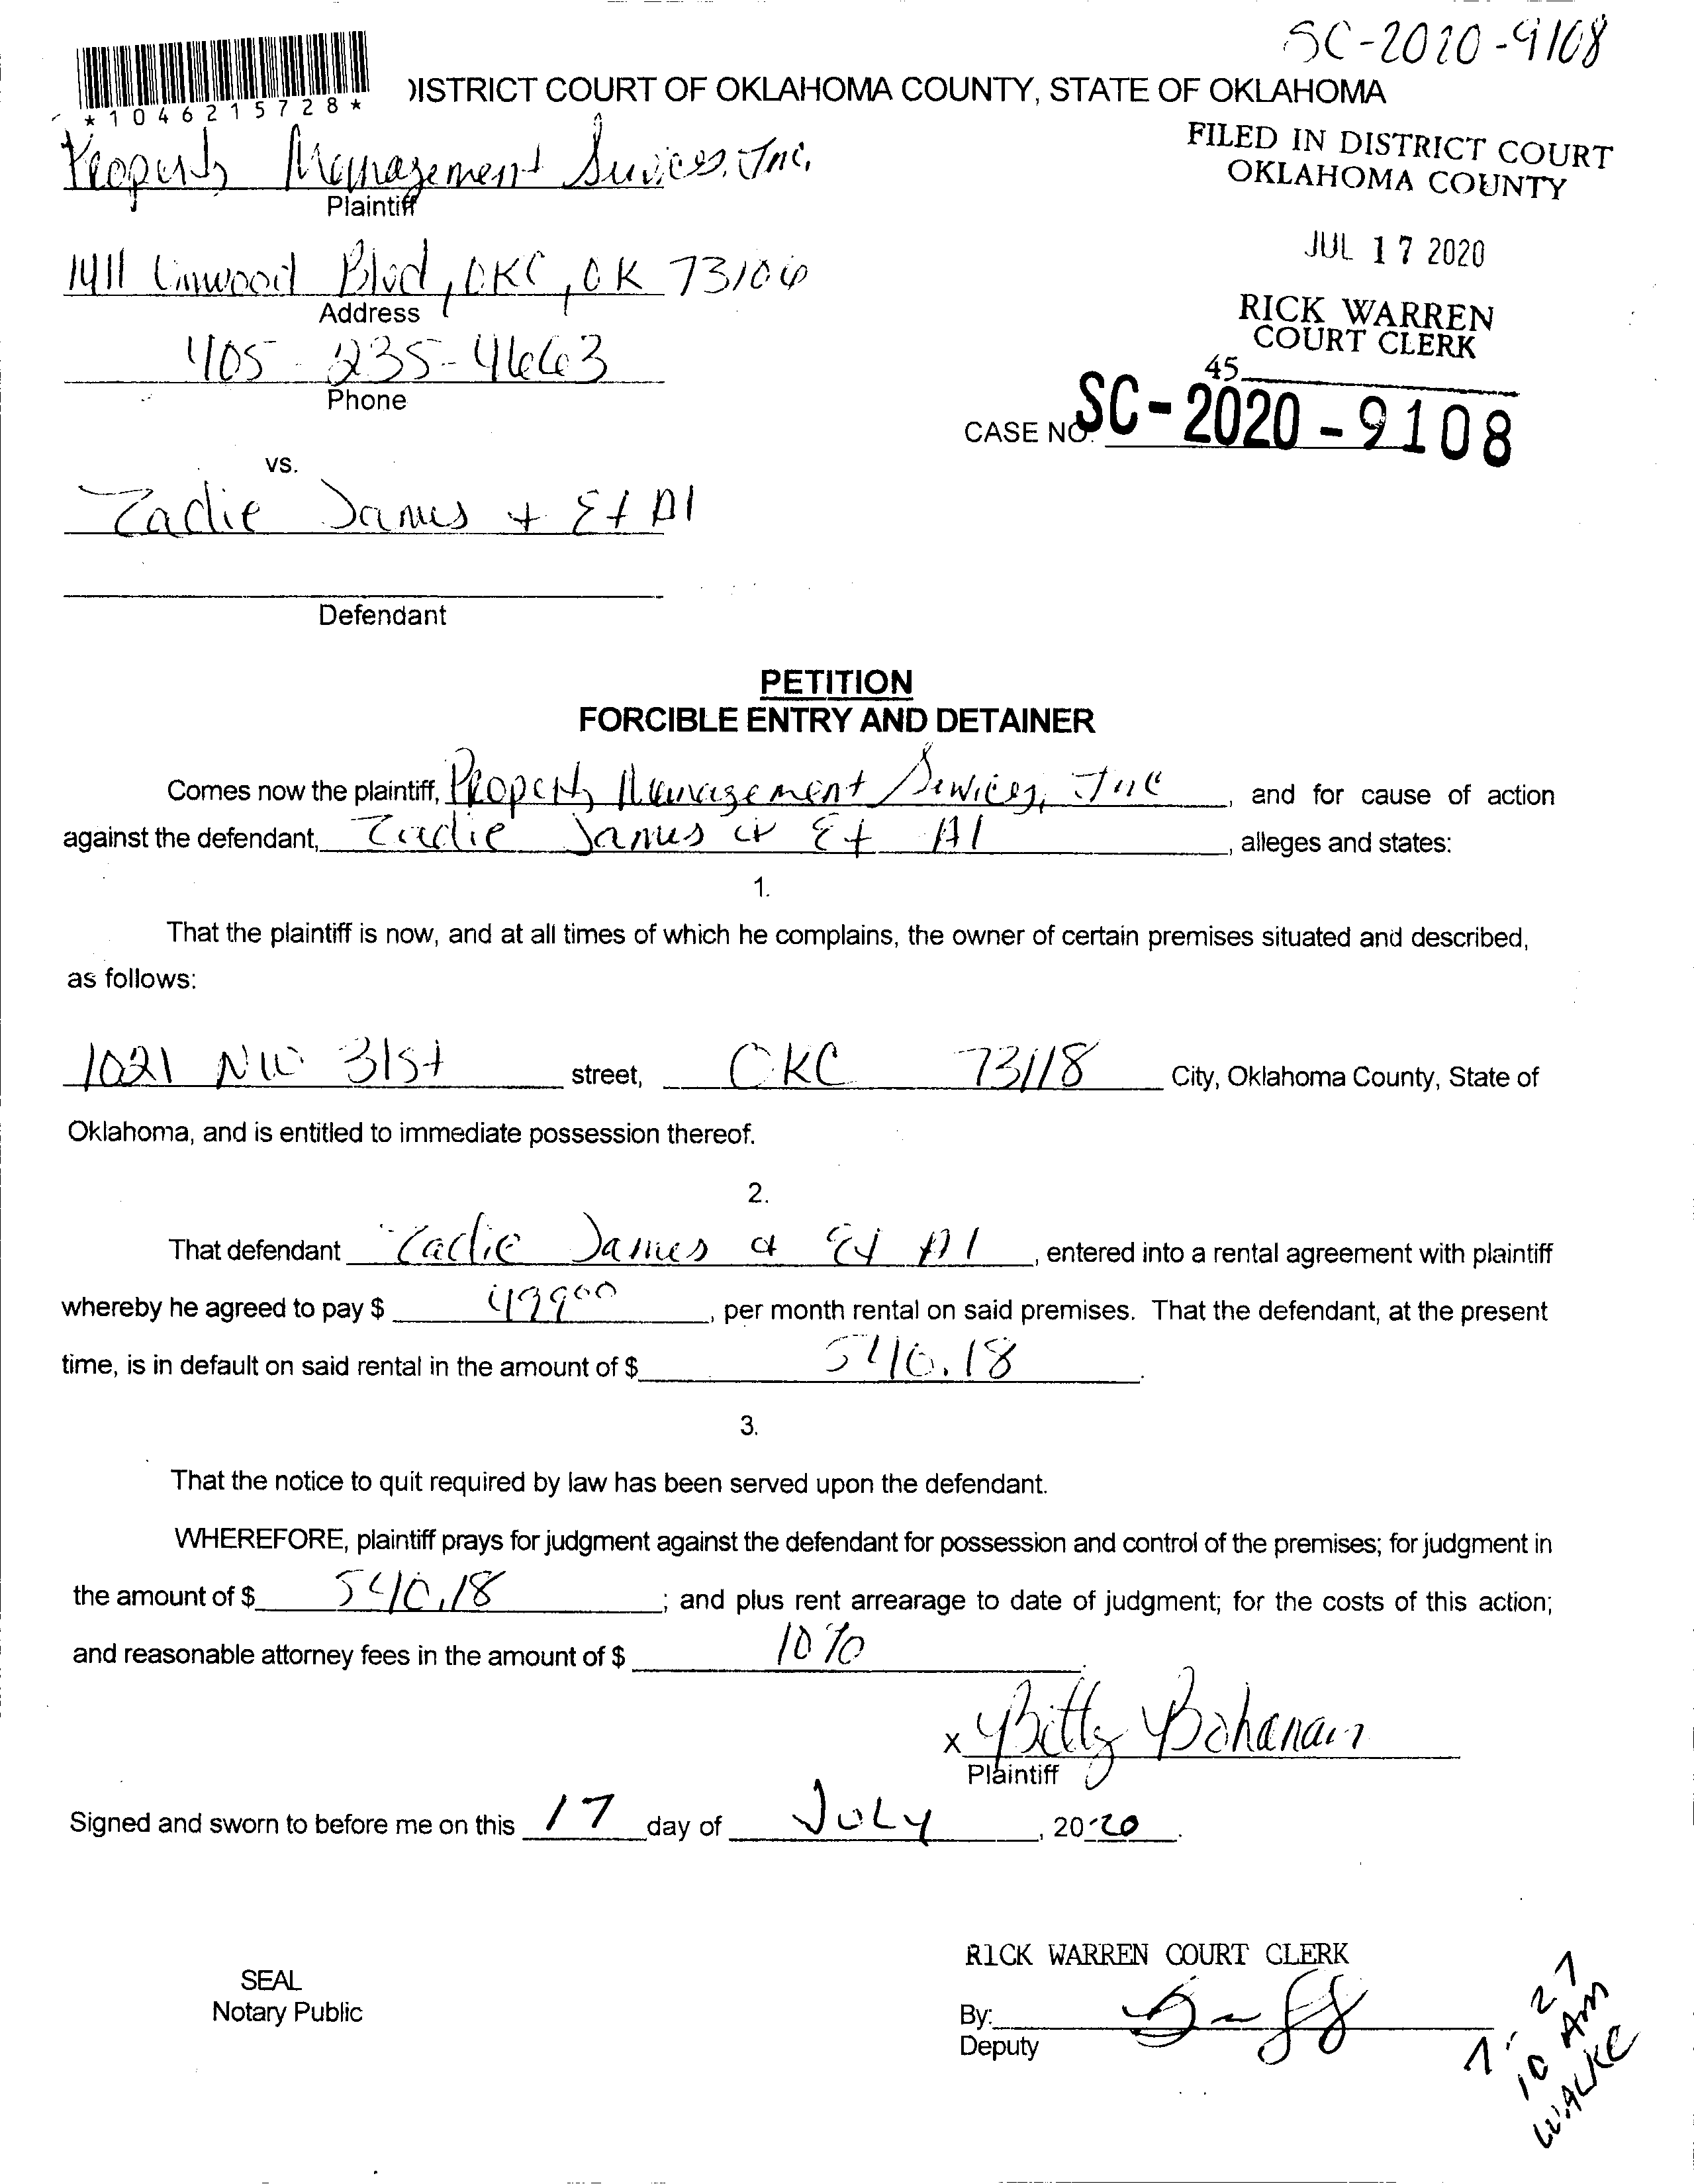 SC-2020-9108
*1046215728*
DISTRICT COURT OF OKLAHOMA COUNTY, STATE OF OKLAHOMA
Property Management Services, Inc.
Plaintiff
FILED IN DISTRICT COURT
OKLAHOMA COUNTY
1411 Linwood Blvd, OKC, OK 73106
Address
JUL 17 2020
405-235-4663
Phone
RICK WARREN
COURT CLERK
45
CASE NO. SC-2020-9108
vs.
Zadie James + Et Al
Defendant
PETITION
FORCIBLE ENTRY AND DETAINER
Comes now the plaintiff, Property Management Services, Inc, and for cause of action
against the defendant, Zadie James & Et Al, alleges and states:
1.
That the plaintiff is now, and at all times of which he complains, the owner of certain premises situated and described,
as follows:
1021 NW 31st street, OKC 73118 City, Oklahoma County, State of
Oklahoma, and is entitled to immediate possession thereof.
2.
That defendant Zadie James & Et Al, entered into a rental agreement with plaintiff
whereby he agreed to pay $ 499 00, per month rental on said premises. That the defendant, at the present
time, is in default on said rental in the amount of $ 540.18.
3.
That the notice to quit required by law has been served upon the defendant.
WHEREFORE, plaintiff prays for judgment against the defendant for possession and control of the premises; for judgment in
the amount of $ 540.18; and plus rent arrearage to date of judgment; for the costs of this action;
and reasonable attorney fees in the amount of $ 10%.
x Betty Bohanan
Plaintiff
Signed and sworn to before me on this 17 day of JULY, 2020.
RICK WARREN COURT CLERK
SEAL
Notary Public
By:
Deputy
7-27
10 AM
WALKE